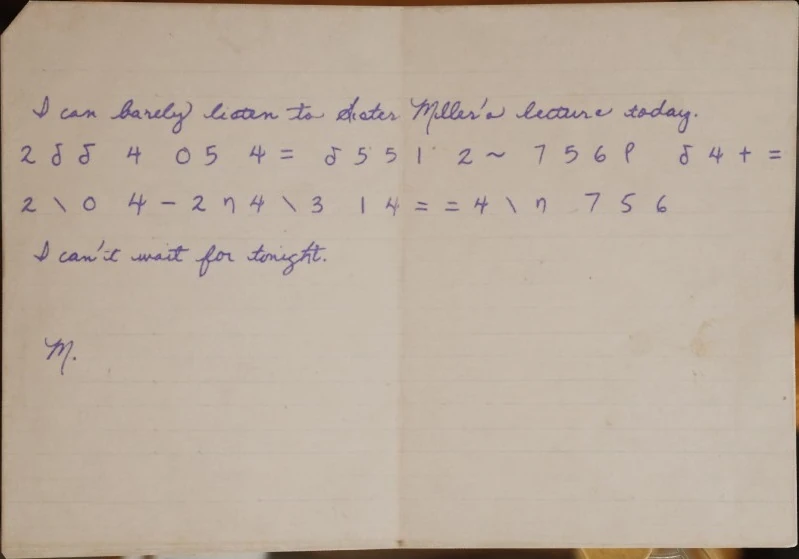 I can barely listen to Sister Miller's lecture today.
2 δ δ 4 0 5 4 = δ 5 5 1 2 ~ 7 5 6 ʅ δ 4 + =
2 \ 0 4 - 2 n 4 \ 3 1 4 = = 4 \ n 7 5 6
I can't wait for tonight.
M.